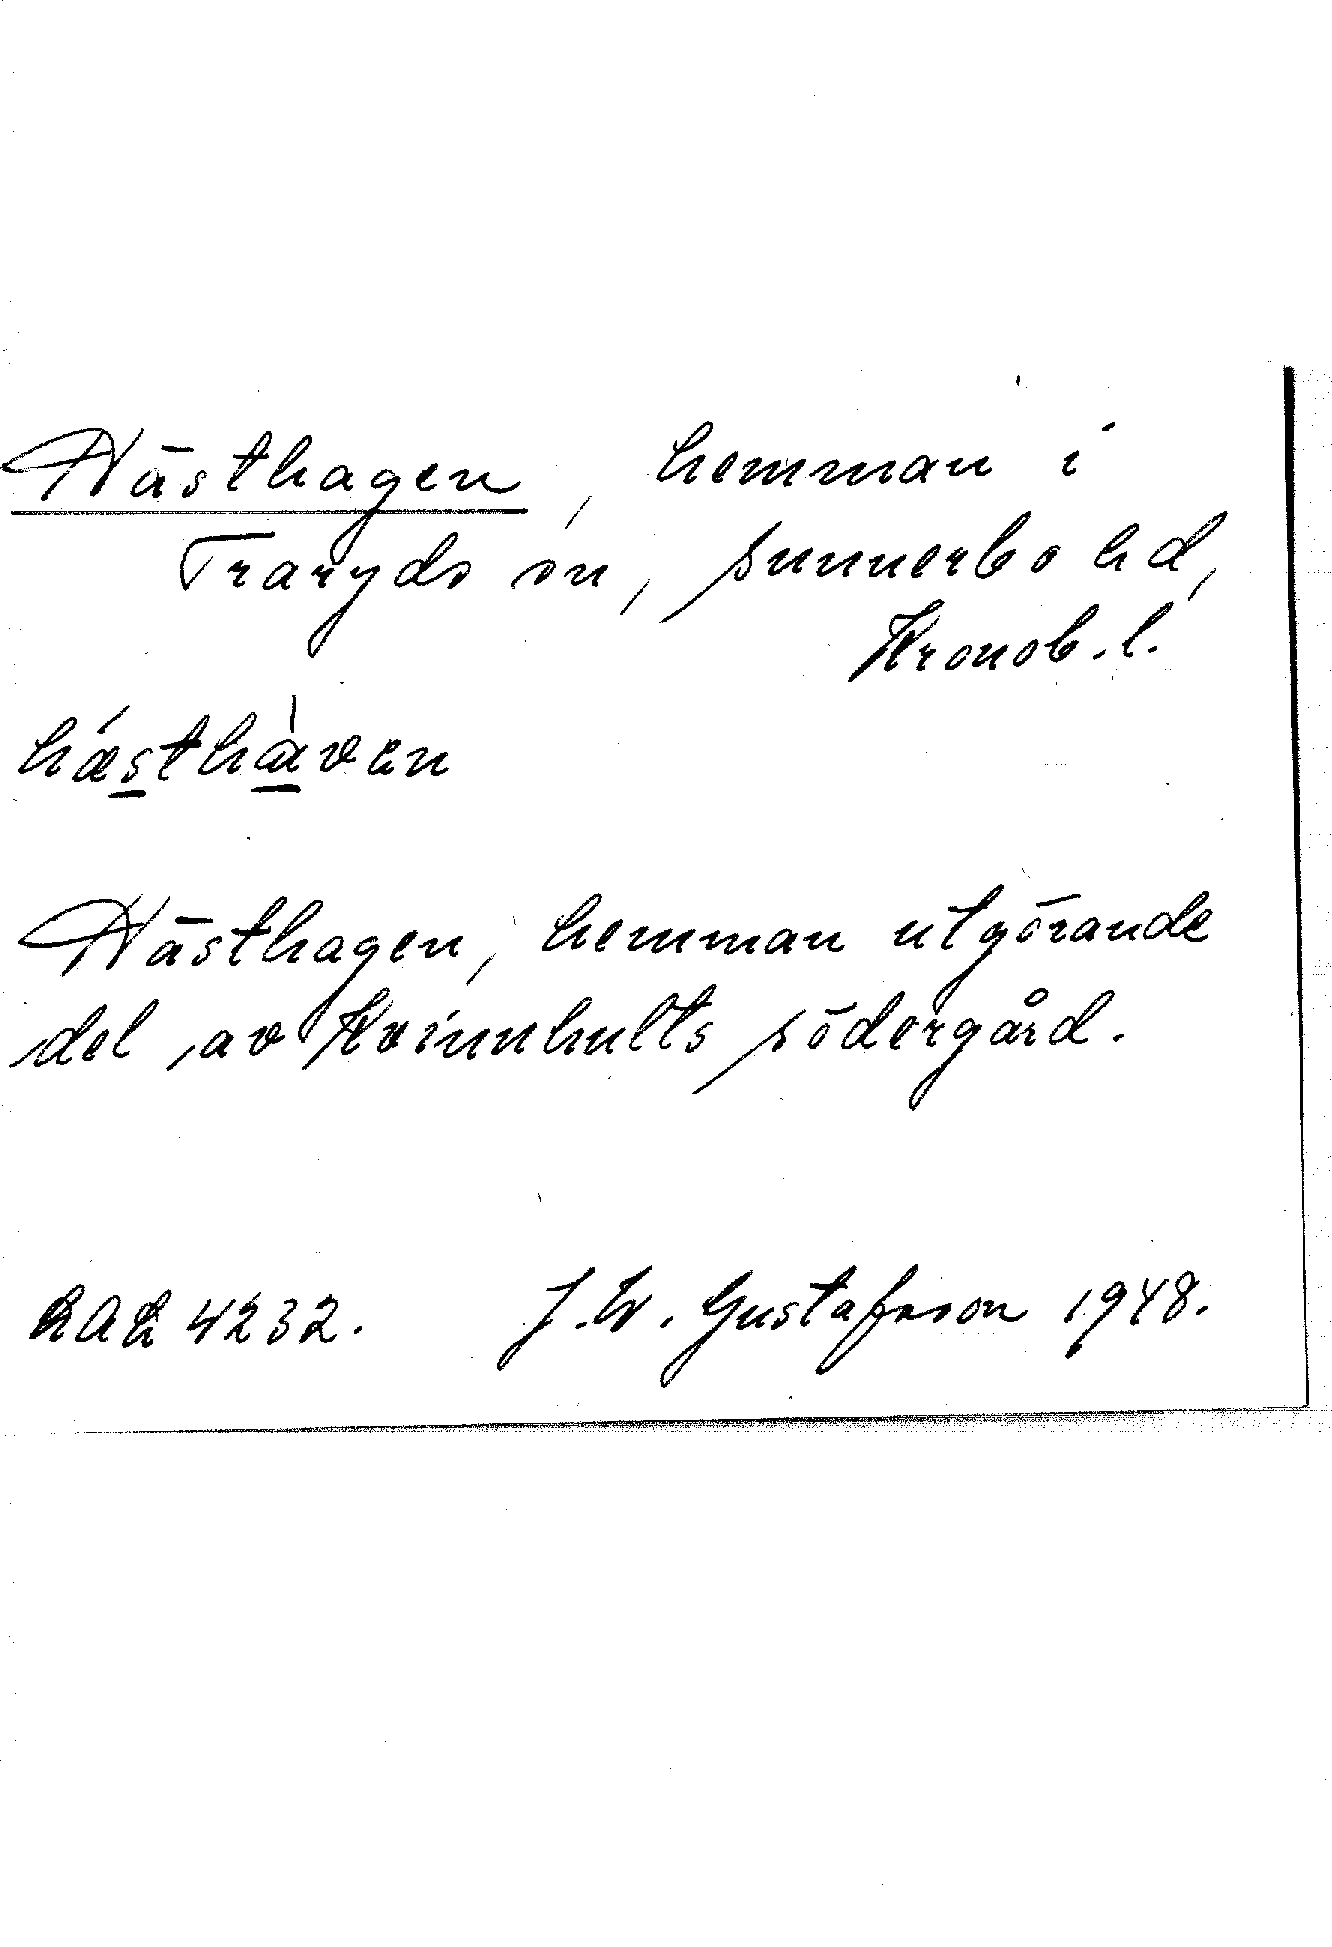 Hästhagen, hemman i
Traryds sn, Sunnerbo hd,
Kronob. l.
hǽsthàvan
Hästhagen, hemman utgörande
del av Kvinnhults södergård.
LAL 4232. J. W. Gustafsson 1948.